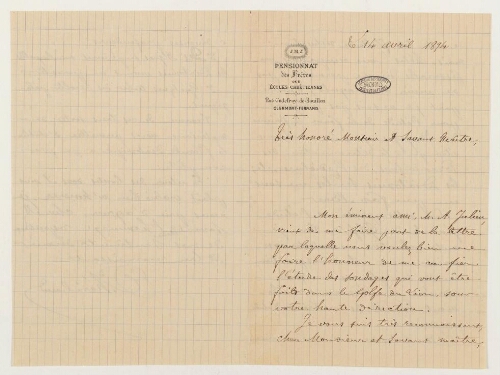 PENSIONNAT
des Frères
DES
ÉCOLES CHRÉTIENNES
Rue Godefroy de Bouillon
CLERMONT-FERRAND
Le 16 avril 1894
Très honoré Monsieur et Savant Maître,
Mon éminent ami, M. A. Julien,
vient de me faire part de la lettre
par laquelle vous voulez bien me
faire l'honneur de me confier
l'étude des sondages qui vont être
faits dans le Golfe du Lion, sous
votre haute Direction.
Je vous suis très reconnaissant,
cher Monsieur et Savant maître,